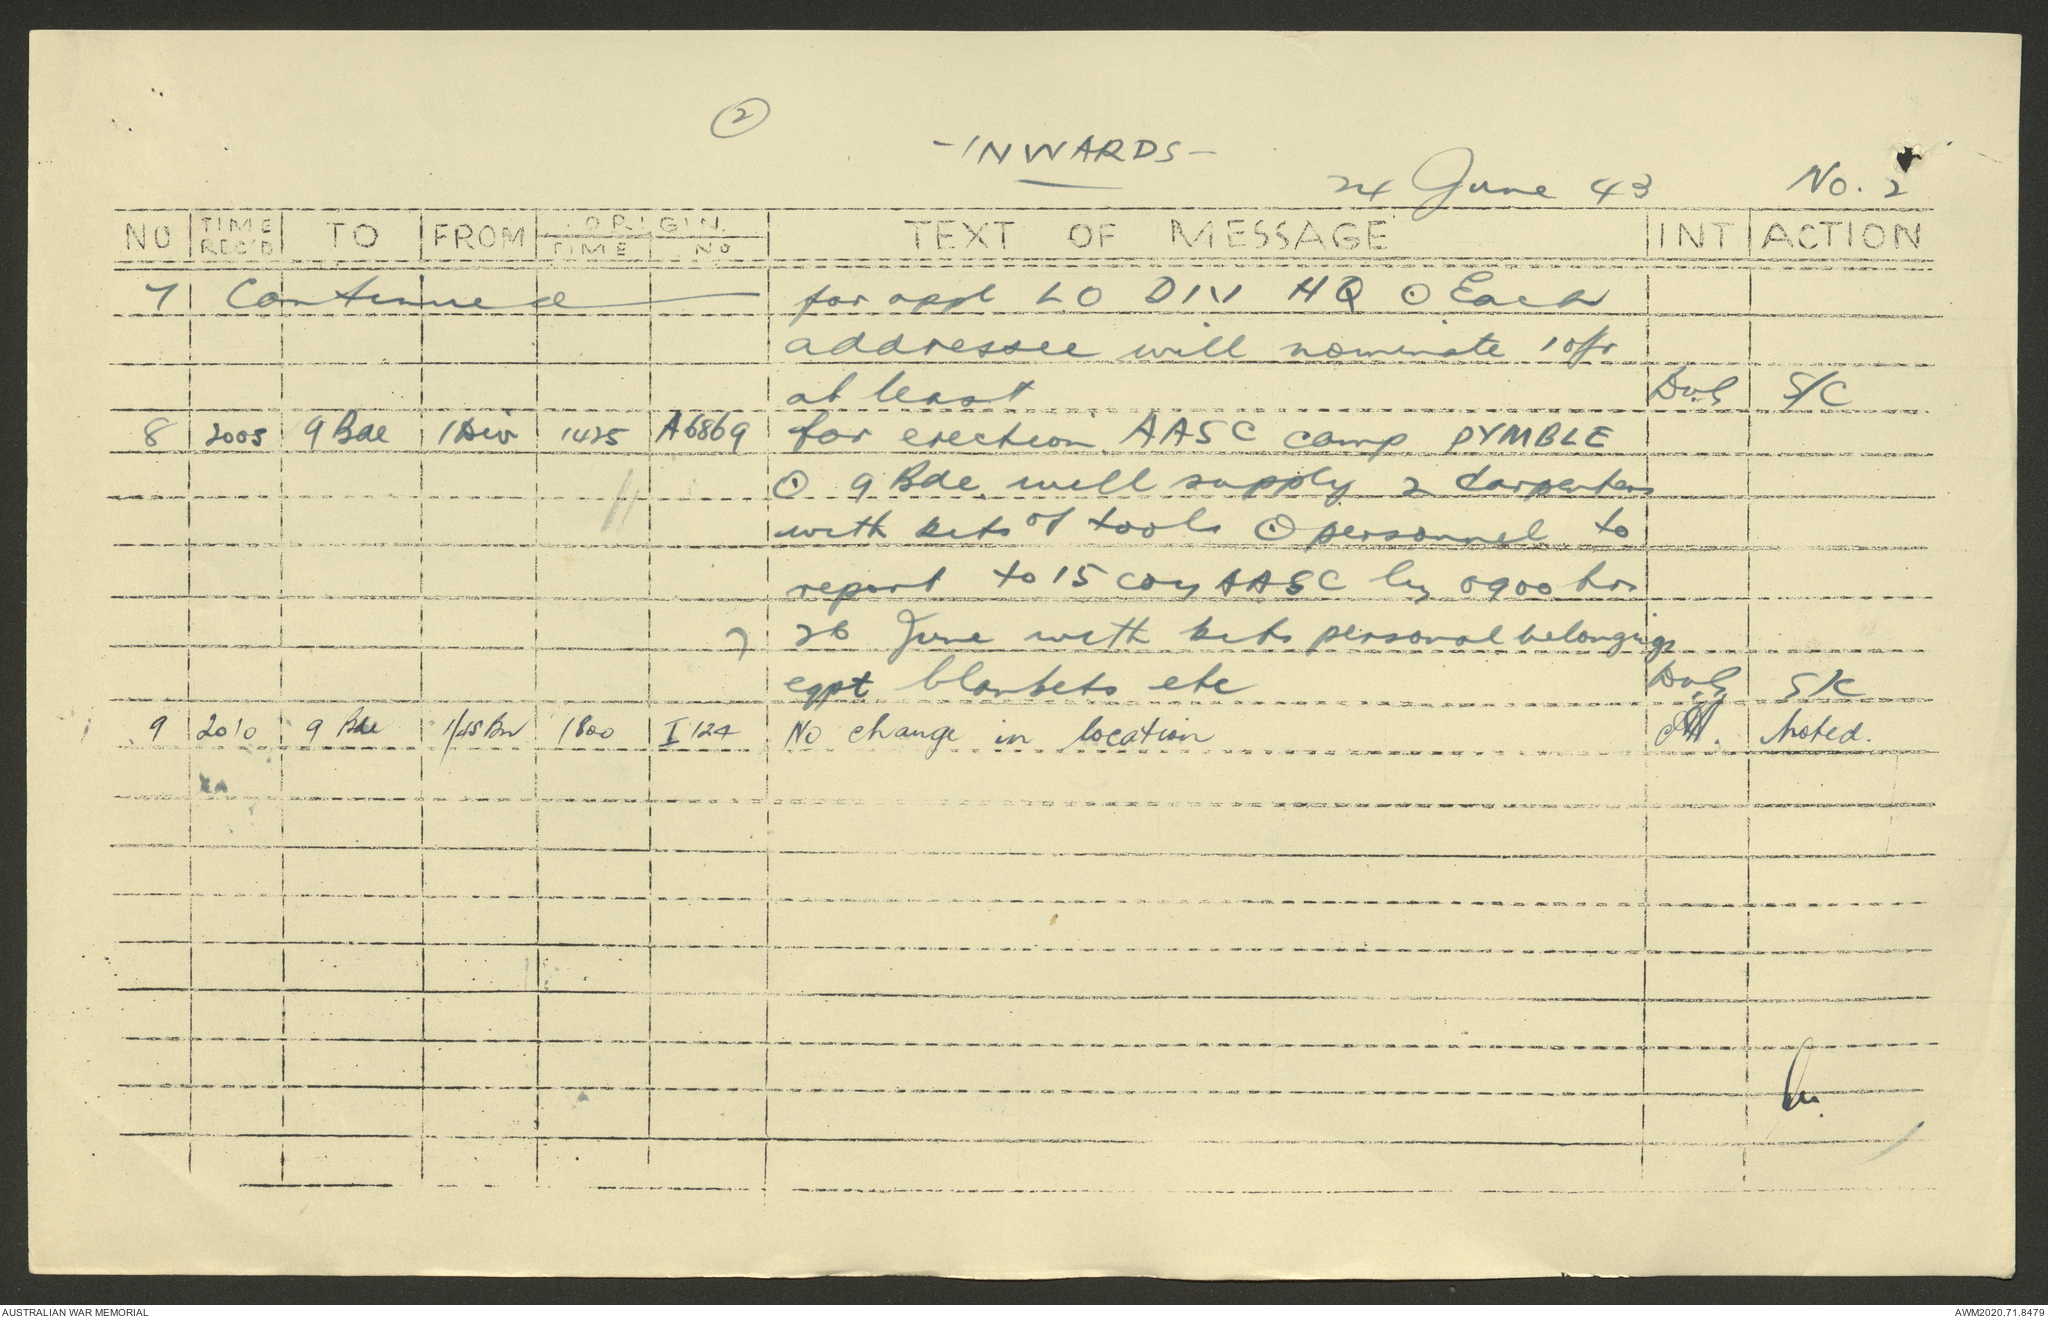 2
- INWARDS -
24 June 43 No. 2
NO TIME REC'D TO FROM ORIGIN. TIME NO TEXT OF MESSAGE INT ACTION
7 Continued for appt LO DIV HQ ⊙ Each
addressee will nominate 1 ofr
at least S/C
8 2005 9 Bde 1 Div 1425 A6869 for erection AASC camp PYMBLE
⊙ 9 Bde will supply 2 carpenters
with kits of tools ⊙ personnel to
report to 15 coy AASC by 0900 hrs
26 June with kits personal belongings
eqpt blankets etc S/C
9 2010 9 Bde 1/45 Bn 1800 I 124 No change in location Noted.
AUSTRALIAN WAR MEMORIAL AWM2020.71.8479